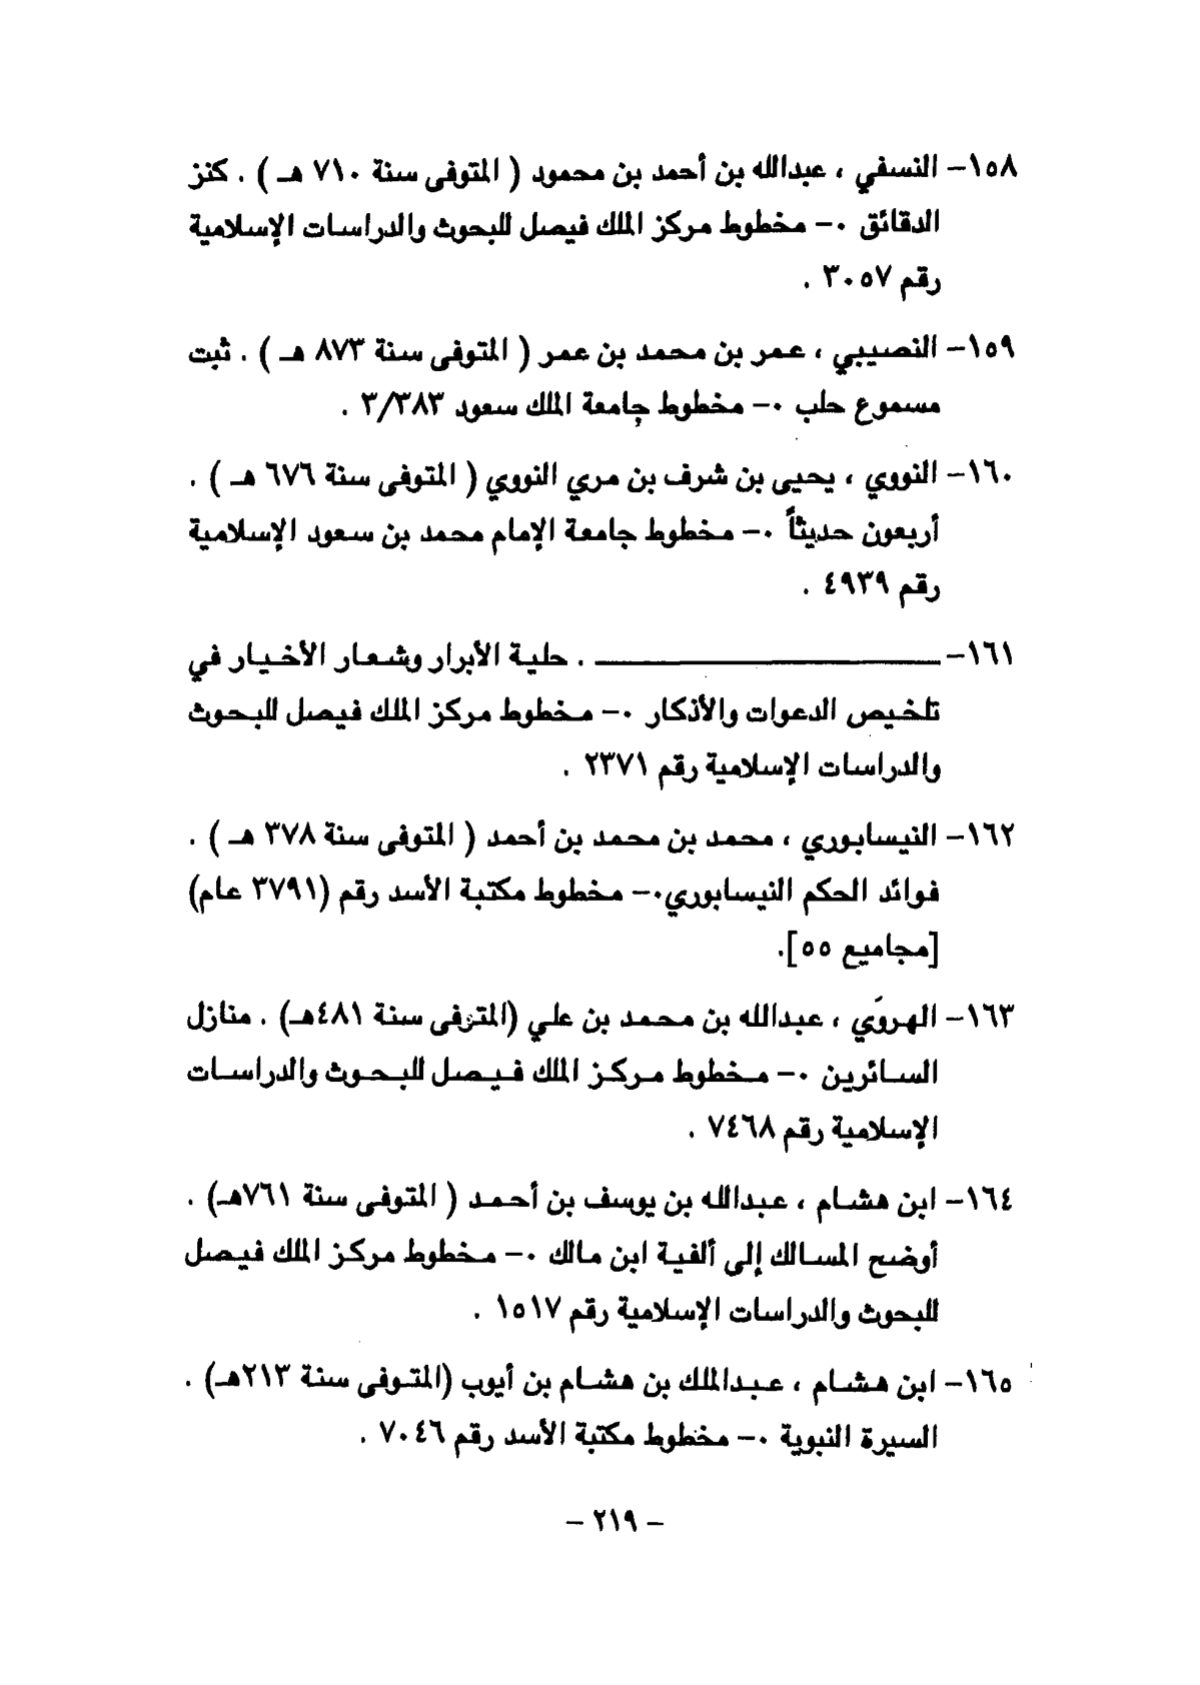 ١٥٨- النسفي ، عبدالله بن أحمد بن محمود ( المتوفى سنة ٧١٠ هـ ) . كنز
الدقائق ٠- مخطوط مركز الملك فيصل للبحوث والدراسات الإسلامية
رقم ٣٠٥٧ .
١٥٩- النصيبي ، عمر بن محمد بن عمر ( المتوفى سنة ٨٧٣ هـ ) . ثبت
مسموع حلب ٠- مخطوط جامعة الملك سعود ٣/٣٨٣ .
١٦٠- النووي ، يحيى بن شرف بن مري النووي ( المتوفى سنة ٦٧٦ هـ ) .
أربعون حديثاً ٠- مخطوط جامعة الإمام محمد بن سعود الإسلامية
رقم ٤٩٣٩ .
١٦١- ــــــــــــــــــــــــ . حلية الأبرار وشعار الأخيار في
تلخيص الدعوات والأذكار ٠- مخطوط مركز الملك فيصل للبحوث
والدراسات الإسلامية رقم ٢٣٧١ .
١٦٢- النيسابوري ، محمد بن محمد بن أحمد ( المتوفى سنة ٣٧٨ هـ ) .
فوائد الحكم النيسابوري٠- مخطوط مكتبة الأسد رقم (٣٧٩١ عام)
[مجاميع ٥٥].
١٦٣- الهروَي ، عبدالله بن محمد بن علي (المتوفى سنة ٤٨١هـ) . منازل
السائرين ٠- مخطوط مركز الملك فيصل للبحوث والدراسات
الإسلامية رقم ٧٤٦٨ .
١٦٤- ابن هشام ، عبدالله بن يوسف بن أحمد ( المتوفى سنة ٧٦١هـ) .
أوضح المسالك إلى ألفية ابن مالك ٠- مخطوط مركز الملك فيصل
للبحوث والدراسات الإسلامية رقم ١٥١٧ .
١٦٥- ابن هشام ، عبدالملك بن هشام بن أيوب (المتوفى سنة ٢١٣هـ) .
السيرة النبوية ٠- مخطوط مكتبة الأسد رقم ٧٠٤٦ .
- ٢١٩ -